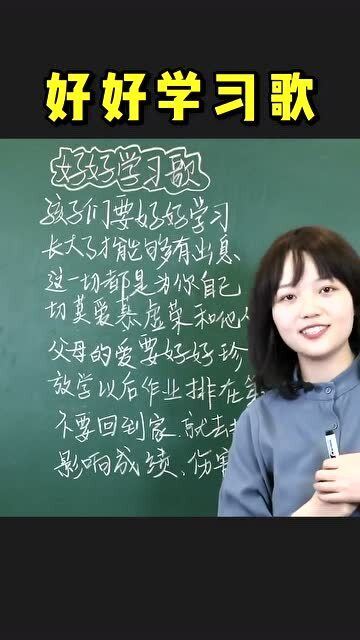 好好学习歌
好好学习歌
孩子们要好好学习
长大了才能够有出息
这一切都是为你自己
切莫爱慕虚荣和他
父母的爱要好好珍
放学以后作业排在
不要回到家.就去
影响成绩、伤害